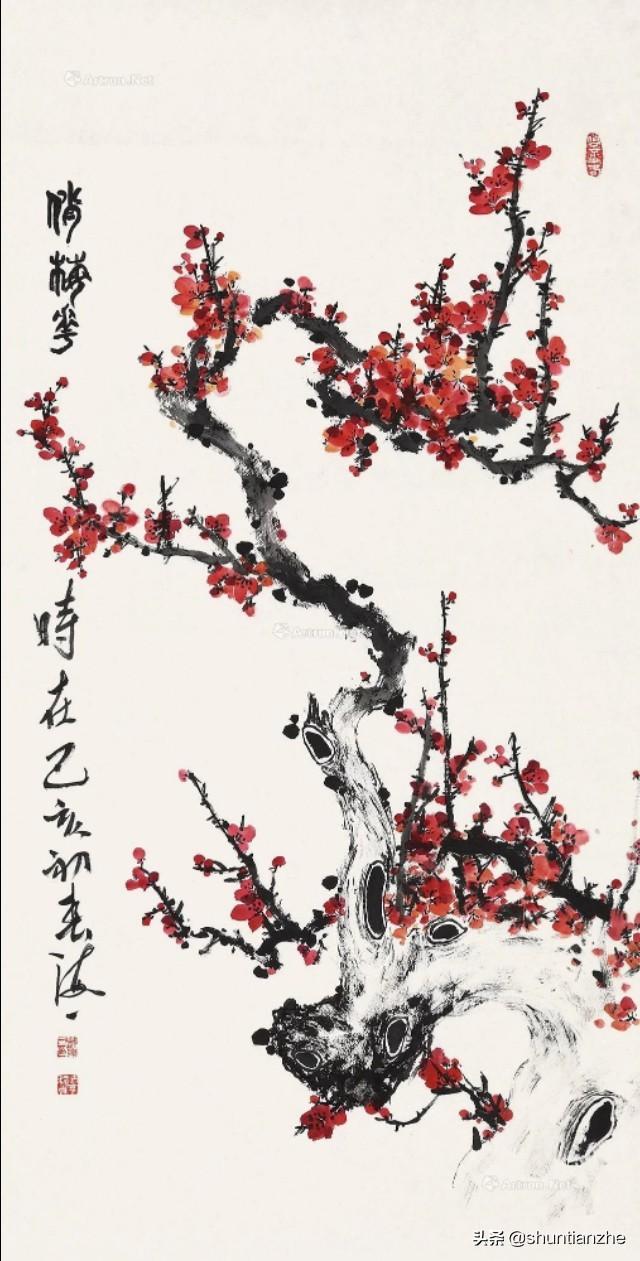 Artron.Net
俏梅花
時在己亥初春
Artron.Net
Artron.Net
头条 @shuntianzhe